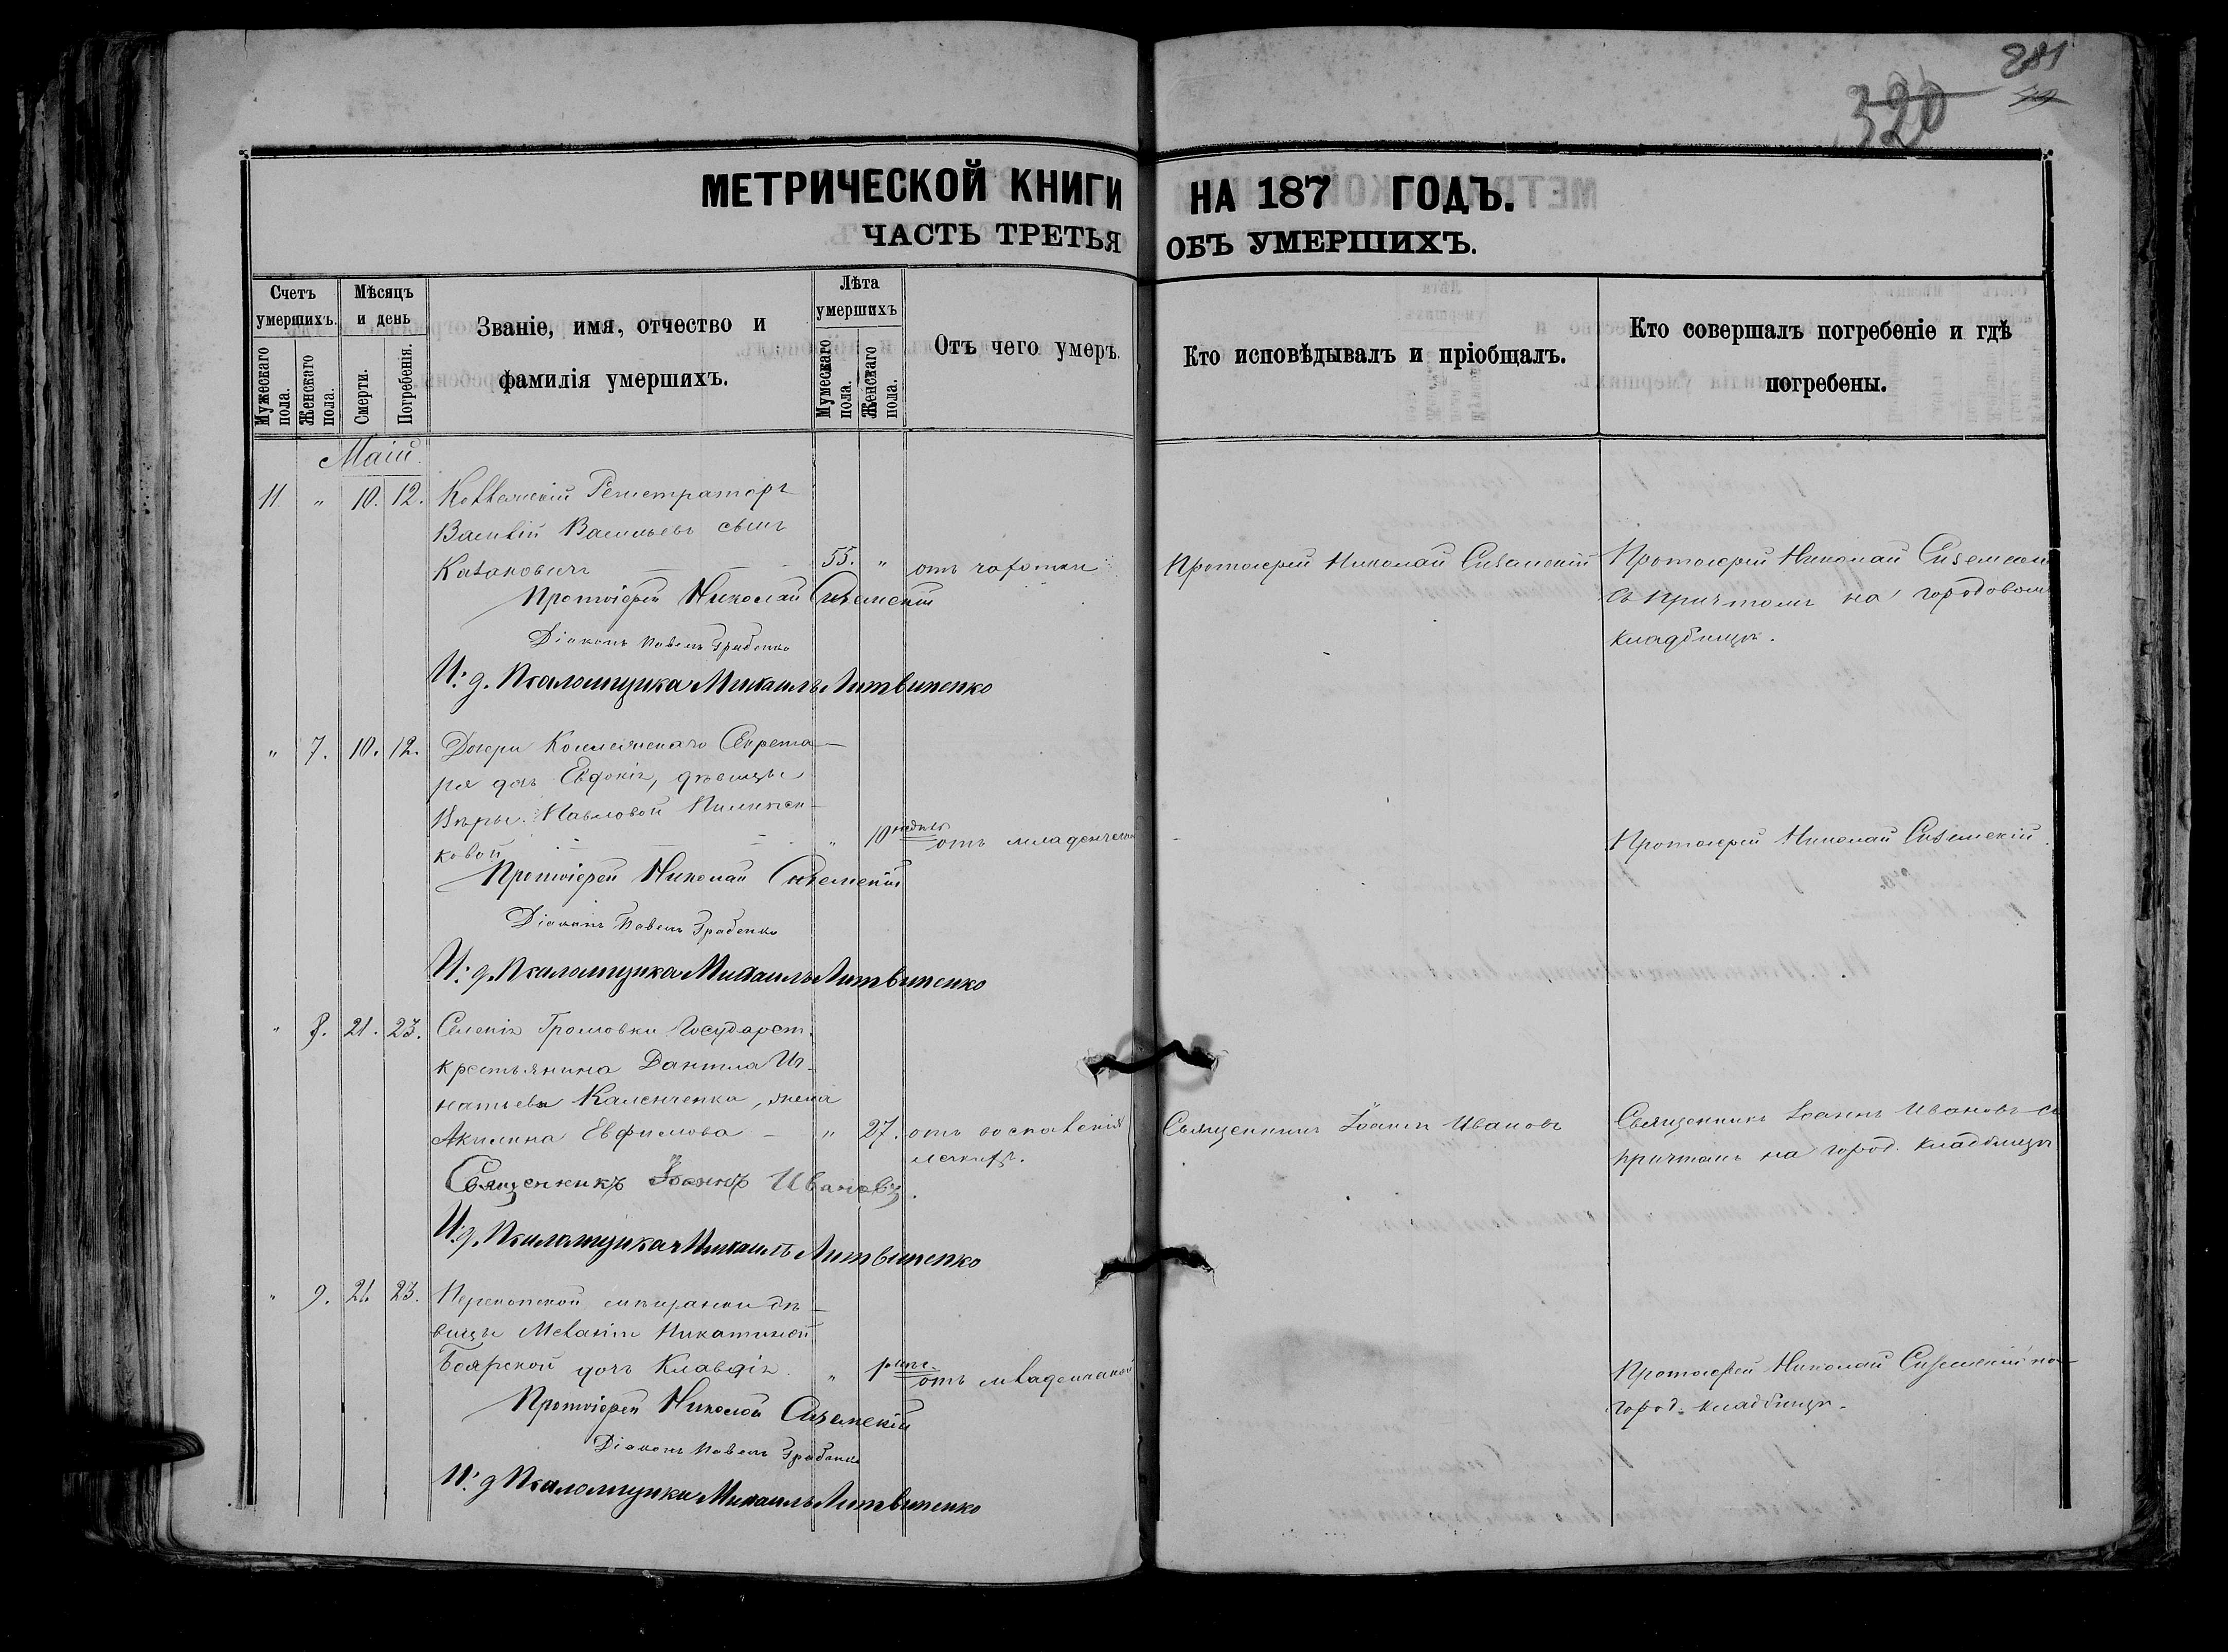 281
320
МЕТРИЧЕСКОЙ КНИГИ НА 187 ГОДЪ.
ЧАСТЬ ТРЕТЬЯ ОБЪ УМЕРШИХЪ.
Счетъ умершихъ.
Мужескаго пола.
Женскаго пола.
Мѣсяцъ и день
Смерти.
Погребенія.
Званіе, имя, отчество и
фамилія умершихъ.
Лѣта умершихъ
Мужескаго пола.
Женскаго пола.
Отъ чего умеръ.
Кто исповѣдывалъ и пріобщалъ.
Кто совершалъ погребеніе и гдѣ
погребены.
Маій
11 " 10. 12. Коллежскій Регистраторъ
Василій Васильевъ сынъ
55. " отъ чахотки Протоіерей Николай Сиземскій Протоіерей Николай
Протоіерей Николай Сиземскій съ причтомъ на городовомъ
Діаконъ Павелъ Грабенко кладбищѣ.
И. д. Псаломщика Михаилъ Литвиненко
" 7. 10. 12. Дочери Коллежскаго Секрета-
ря дочь Евдокія, дѣвицы
Вѣры Павловой
ковой " 10 отъ младенческ Протоіерей Николай Сиземскій.
Протоіерей Николай Сиземскій
Діаконъ Павелъ Грабенко
И. д. Псаломщика Михаилъ Литвиненко
" 8. 21. 23. Селенія Громовки Государст.
крестьянина Данила Иг-
натьева Каленченка, жена
Акилина Евфимова - " 27. отъ воспаленія Священникъ Іоаннъ Ивановъ Священникъ Іоаннъ Ивановъ съ
причтомъ на город. кладбищѣ
Священникъ Іоаннъ Ивановъ.
И. д. Псаломщика Михаилъ Литвиненко
" 9. 21. 23. Перекопской мѣщанки дѣ-
вицы Меланіи Никитиной
Боярской дочь Клавдія. " 1 отъ младенческой Протоіерей Николай Сиземскій на
Протоіерей Николай Сиземскій город. кладбищѣ.
Діаконъ Павелъ Грабенко
И. д. Псаломщика Михаилъ Литвиненко